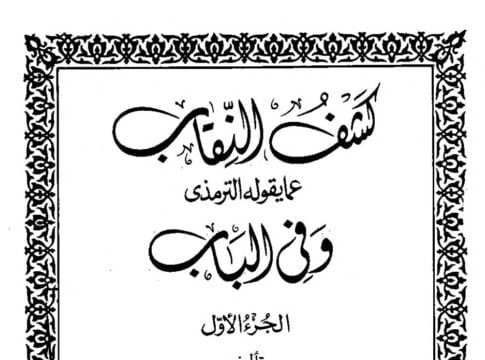 كَشْفُ النِّقَاب
عمايقوله الترمذى
وَفِى البَاب
الجُزءُ الأوّل
تأليف